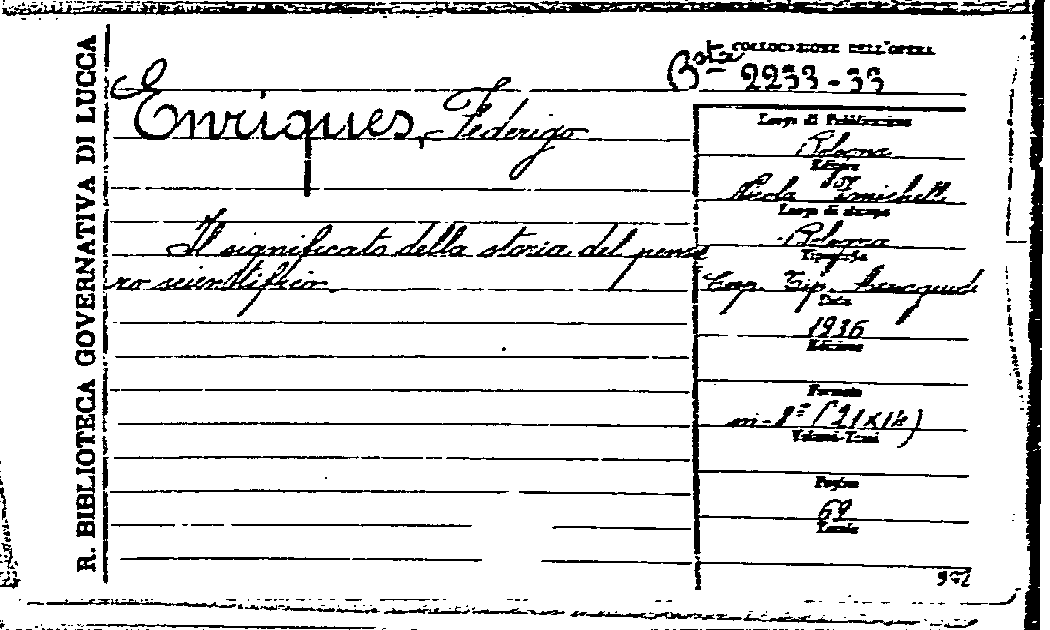 R. BIBLIOTECA GOVERNATIVA DI LUCCA
COLLOCAZIONE DELL'OPERA
Bta 2233-33
Enriques, Federigo
Il significato della storia del pensie
ro scientifico.
Luogo di Pubblicazione
Bologna
Editore
Nicola Zanichelli
Luogo di stampa
Bologna
Tipografia
Coop. Tip.
Data
1936
Edizione
Formato
in-8°
Volumi-Tomi
Pagine
69